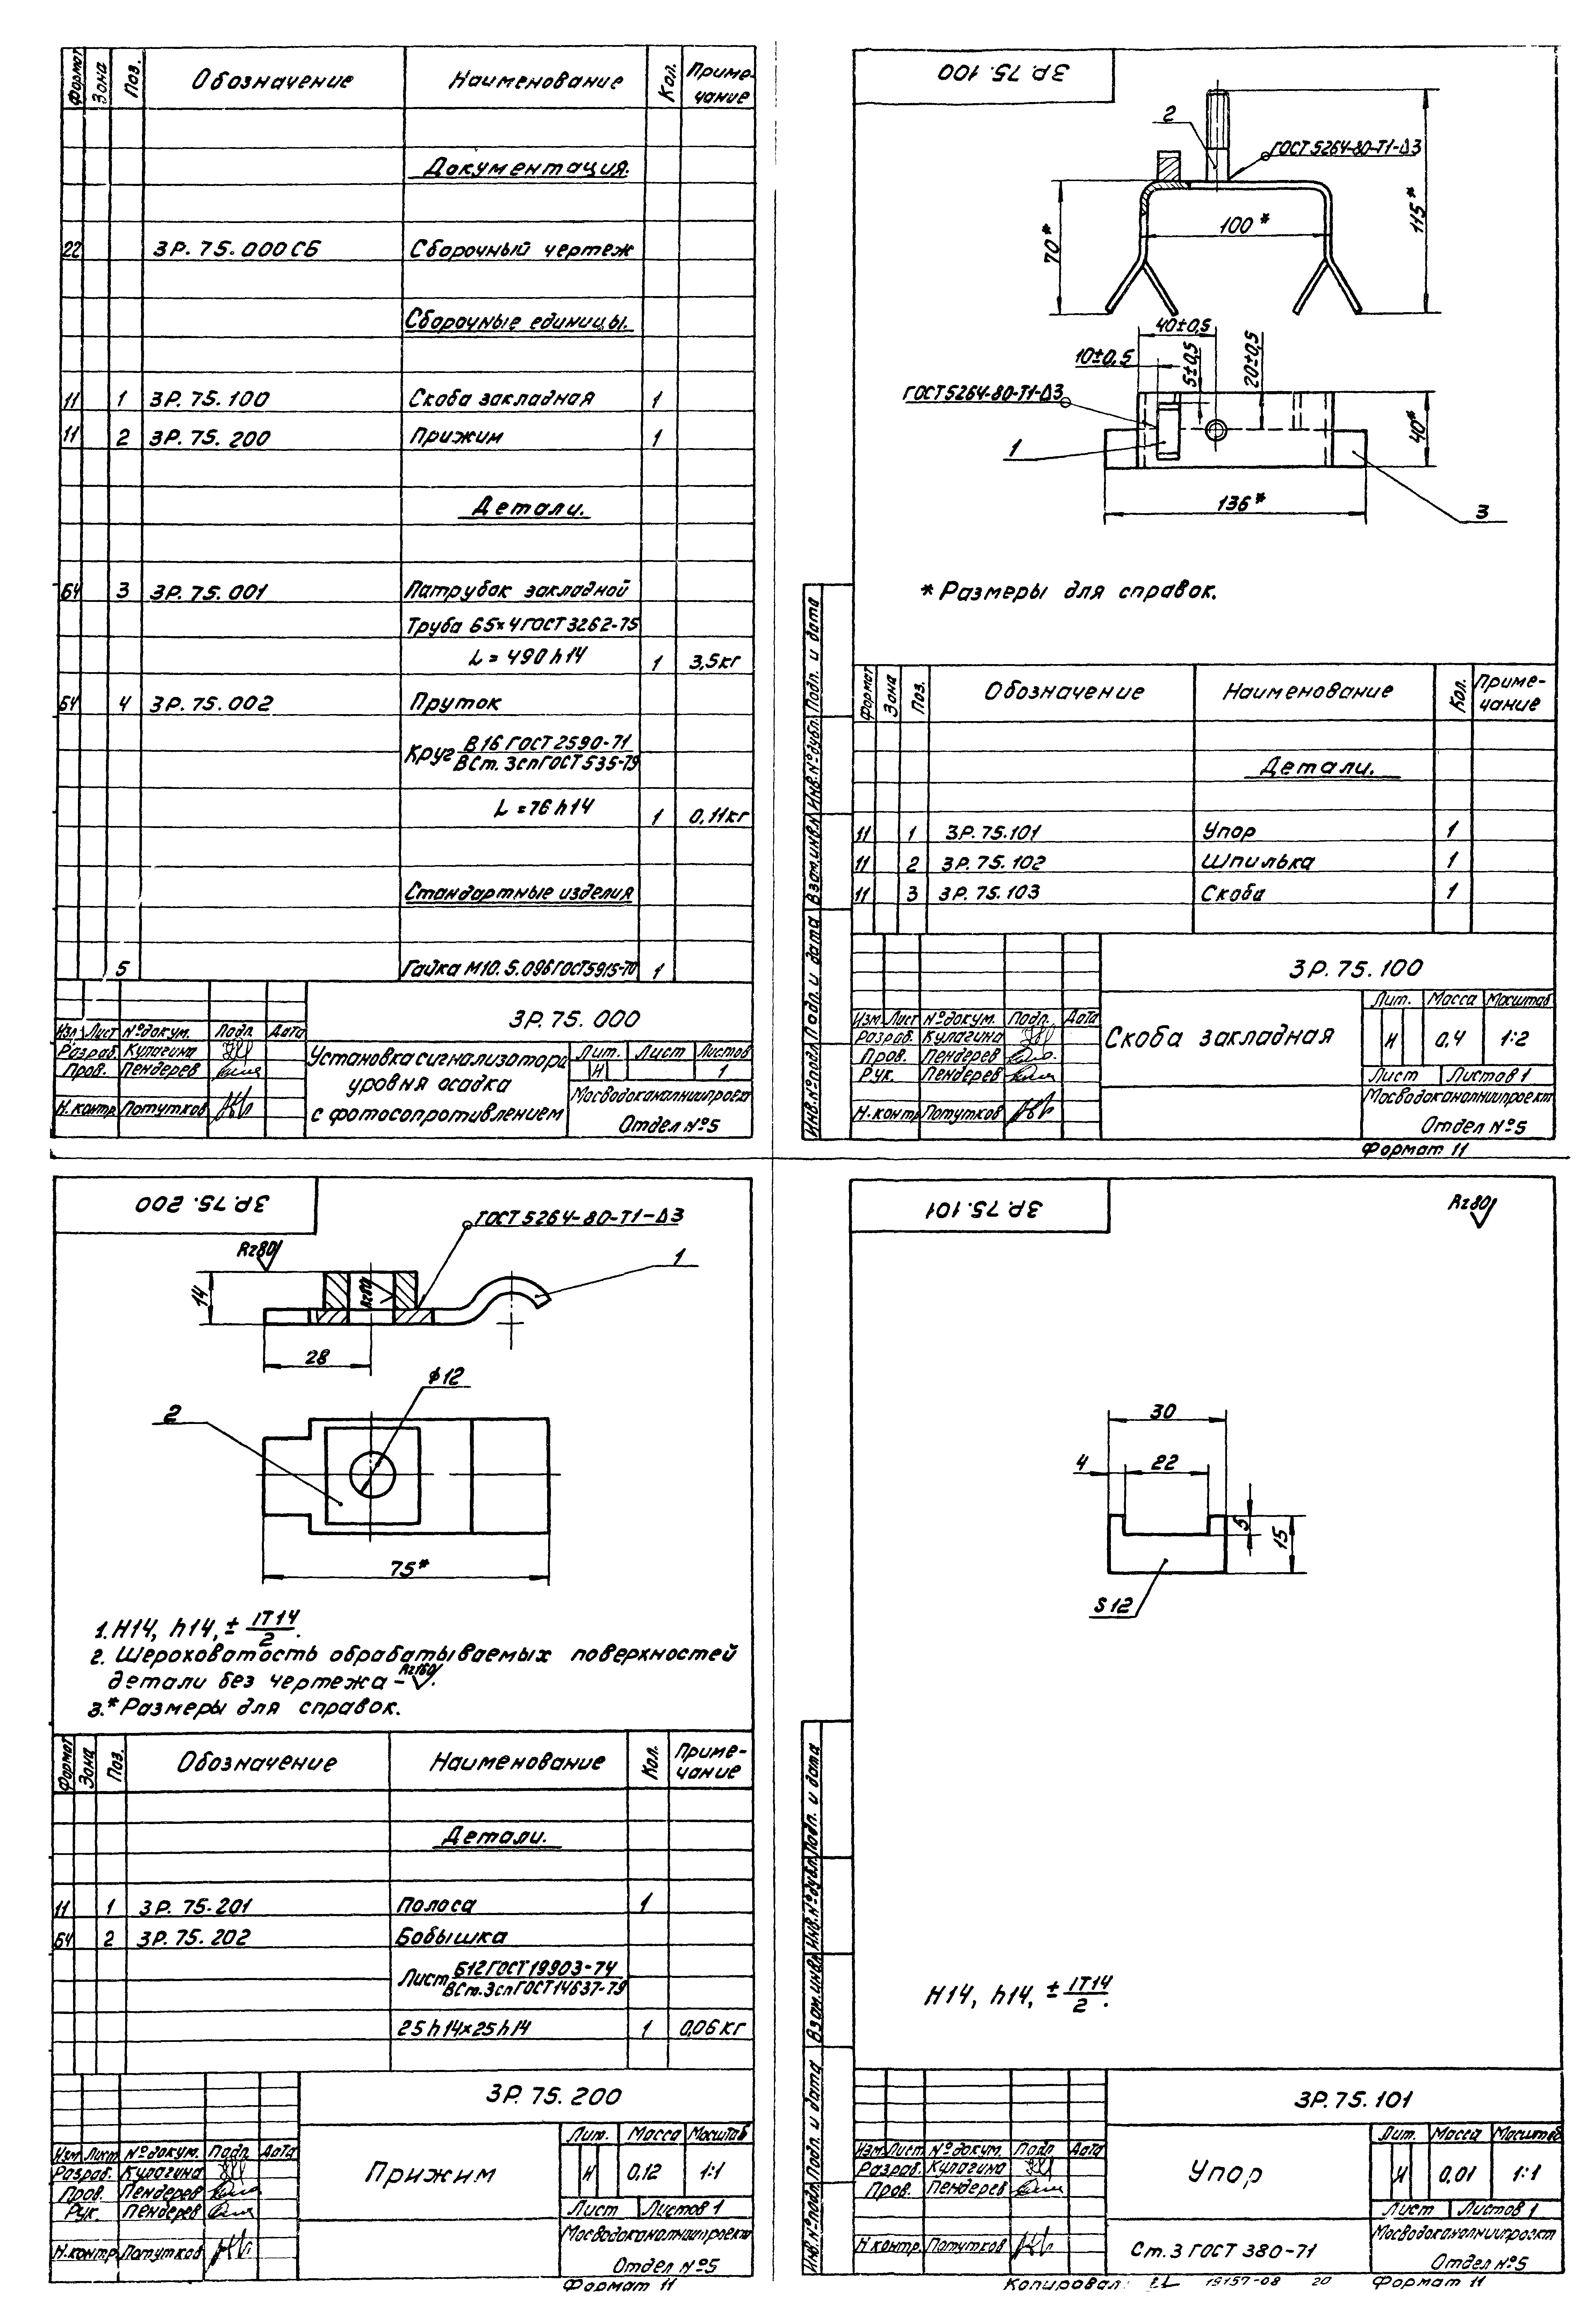 Формат Зона Поз. Обозначение Наименование Кол. Приме-
чание
Документация.
22 ЗР. 75. 000 СБ Сборочный чертеж
Сборочные единицы.
11 1 ЗР. 75. 100 Скоба закладная 1
11 2 ЗР. 75. 200 Прижим 1
Детали.
Б4 3 ЗР. 75. 001 Патрубок закладной
Труба 65×4 ГОСТ 3262-75
L = 490 h14 1 3,5кг
Б4 4 ЗР. 75. 002 Пруток
Круг В16 ГОСТ 2590-71
ВСт. 3сп ГОСТ 535-79
L = 76 h14 1 0,11кг
Стандартные изделия
5 Гайка М10.5.096 ГОСТ 5915-70 1
ЗР. 75. 000
Изм Лист № докум. Подп. Дата
Разраб. Кулагина
Пров. Пендерев
Н.контр. Потутков
Установка сигнализатора
уровня осадка
с фотосопротивлением
Лит. Лист Листов
Н 1
Мосводоканалниипроект
Отдел №5
ЗР. 75. 100
2
ГОСТ 5264-80-Т1-Δ3
115*
70*
100*
40±0,5
10±0,5
5±0,5
20±0,5
ГОСТ 5264-80-Т1-Δ3
40*
1
136*
3
* Размеры для справок.
Формат Зона Поз. Обозначение Наименование Кол. Приме-
чание
Детали.
11 1 ЗР. 75.101 Упор 1
11 2 ЗР. 75. 102 Шпилька 1
11 3 ЗР. 75. 103 Скоба 1
ЗР. 75. 100
Изм Лист № докум. Подп. Дата
Разраб. Кулагина
Пров. Пендерев
Рук. Пендерев
Н.контр. Потутков
Скоба закладная
Лит. Масса Масштаб
Н 0,4 1:2
Лист Листов 1
Мосводоканалниипроект
Отдел №5
Формат 11
Инв.№подл. Подп. и дата Взам.инв.№ Инв.№дубл. Подп. и дата
ЗР. 75. 200
ГОСТ 5264-80-Т1-Δ3
Rz80
Rz80
1
14
28
ϕ12
2
75*
1. Н14, h14, ± IT14
2.
2. Шероховатость обрабатываемых поверхностей
детали без чертежа – Rz160.
3.* Размеры для справок.
Формат Зона Поз. Обозначение Наименование Кол. Приме-
чание
Детали.
11 1 ЗР. 75. 201 Полоса 1
Б4 2 ЗР. 75. 202 Бобышка
Лист Б12 ГОСТ 19903-74
ВСт.3сп ГОСТ 14637-79
25 h14×25 h14 1 0,06 кг
ЗР. 75. 200
Изм Лист № докум. Подп. Дата
Разраб. Кулагина
Пров. Пендерев
Рук. Пендерев
Н.контр. Потутков
Прижим
Лит. Масса Масштаб
Н 0,12 1:1
Лист Листов 1
Мосводоканалниипроект
Отдел №5
Формат 11
ЗР. 75. 101
Rz80
30
4 22
5
15
S 12
Н14, h14, ± IT14
2.
ЗР. 75. 101
Изм Лист № докум. Подп. Дата
Разраб. Кулагина
Пров. Пендерев
Н.контр. Потутков
Упор
Лит. Масса Масштаб
Н 0,01 1:1
Лист Листов 1
Ст. 3 ГОСТ 380-71
Мосводоканалниипроект
Отдел №5
Инв.№подл. Подп. и дата Взам.инв.№ Инв.№дубл. Подп. и дата
Копировал: 19157-08 20 Формат 11